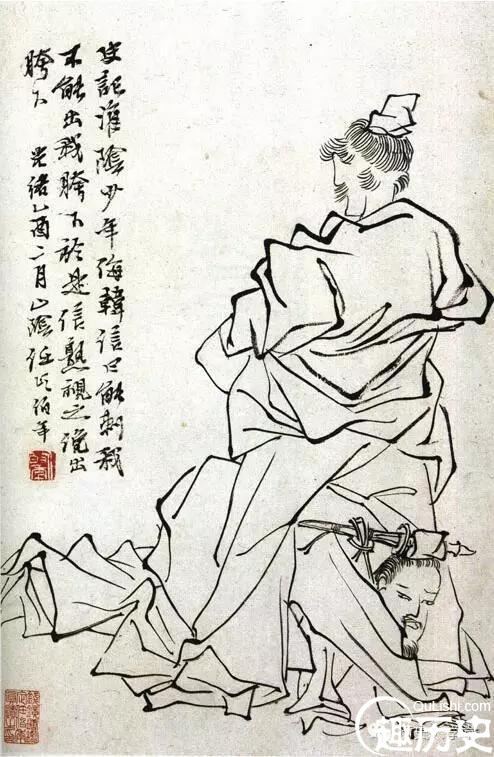 史記淮陰少年侮韓信曰能刺我
不能出我胯下於是信熟視之俛出
胯下 光緒乙酉二月山陰任頤伯年
QuLishi.com
趣历史